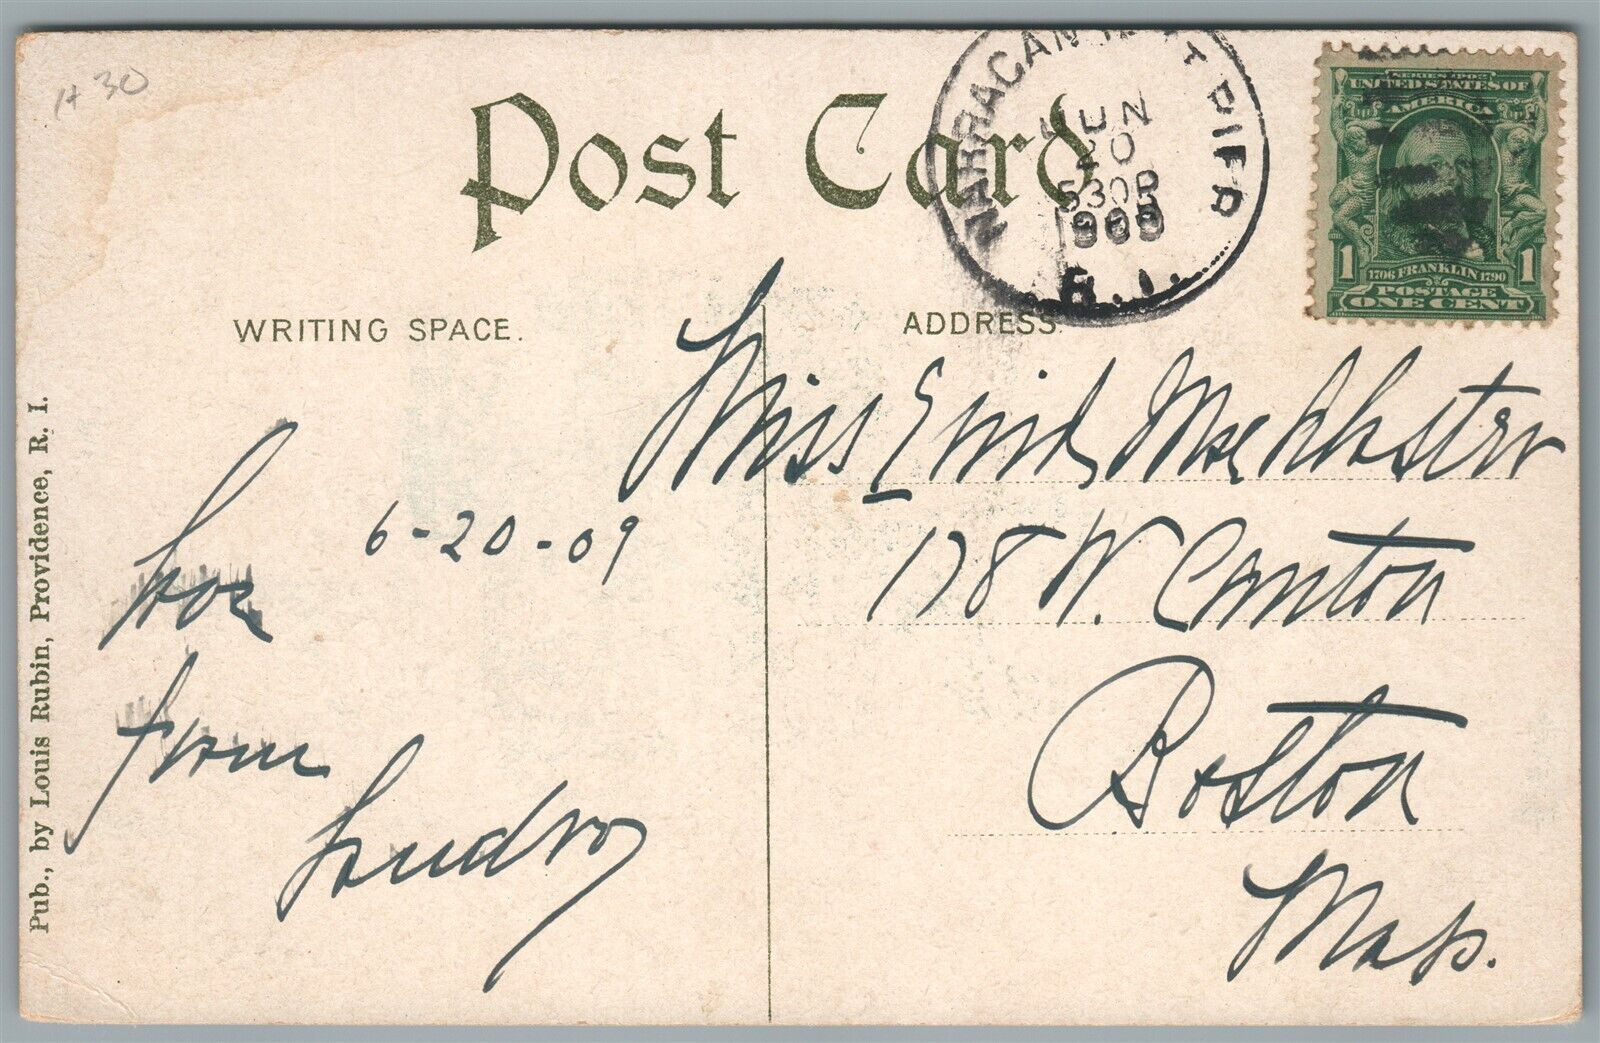 # 30
Post Card
NARRAGANSETT PIER
JUN
20
530P
R. I.
SERIES 1902
UNITED STATES OF
AMERICA
1 1706 FRANKLIN 1790 1
POSTAGE
ONE CENT
WRITING SPACE.
ADDRESS.
Miss Enid
178 W. Canton
Boston
Mass.
6-20-09
from
Pub., by Louis Rubin, Providence, R. I.